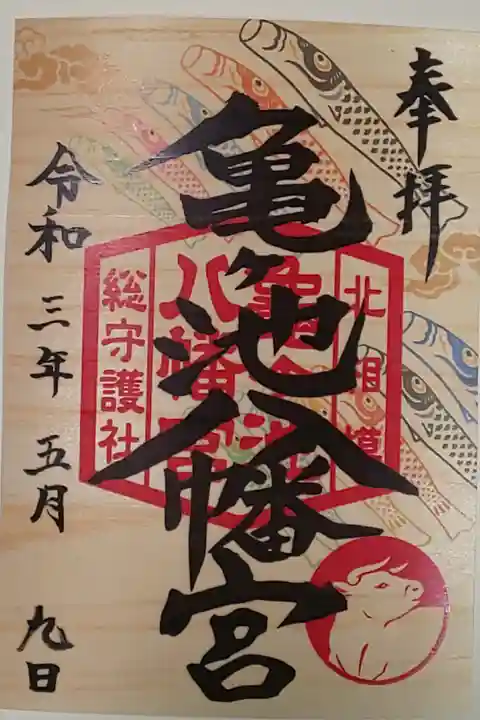 奉拝
北相模
亀ヶ池
八幡宮
総守護社
亀ヶ池八幡宮
令和三年五月九日